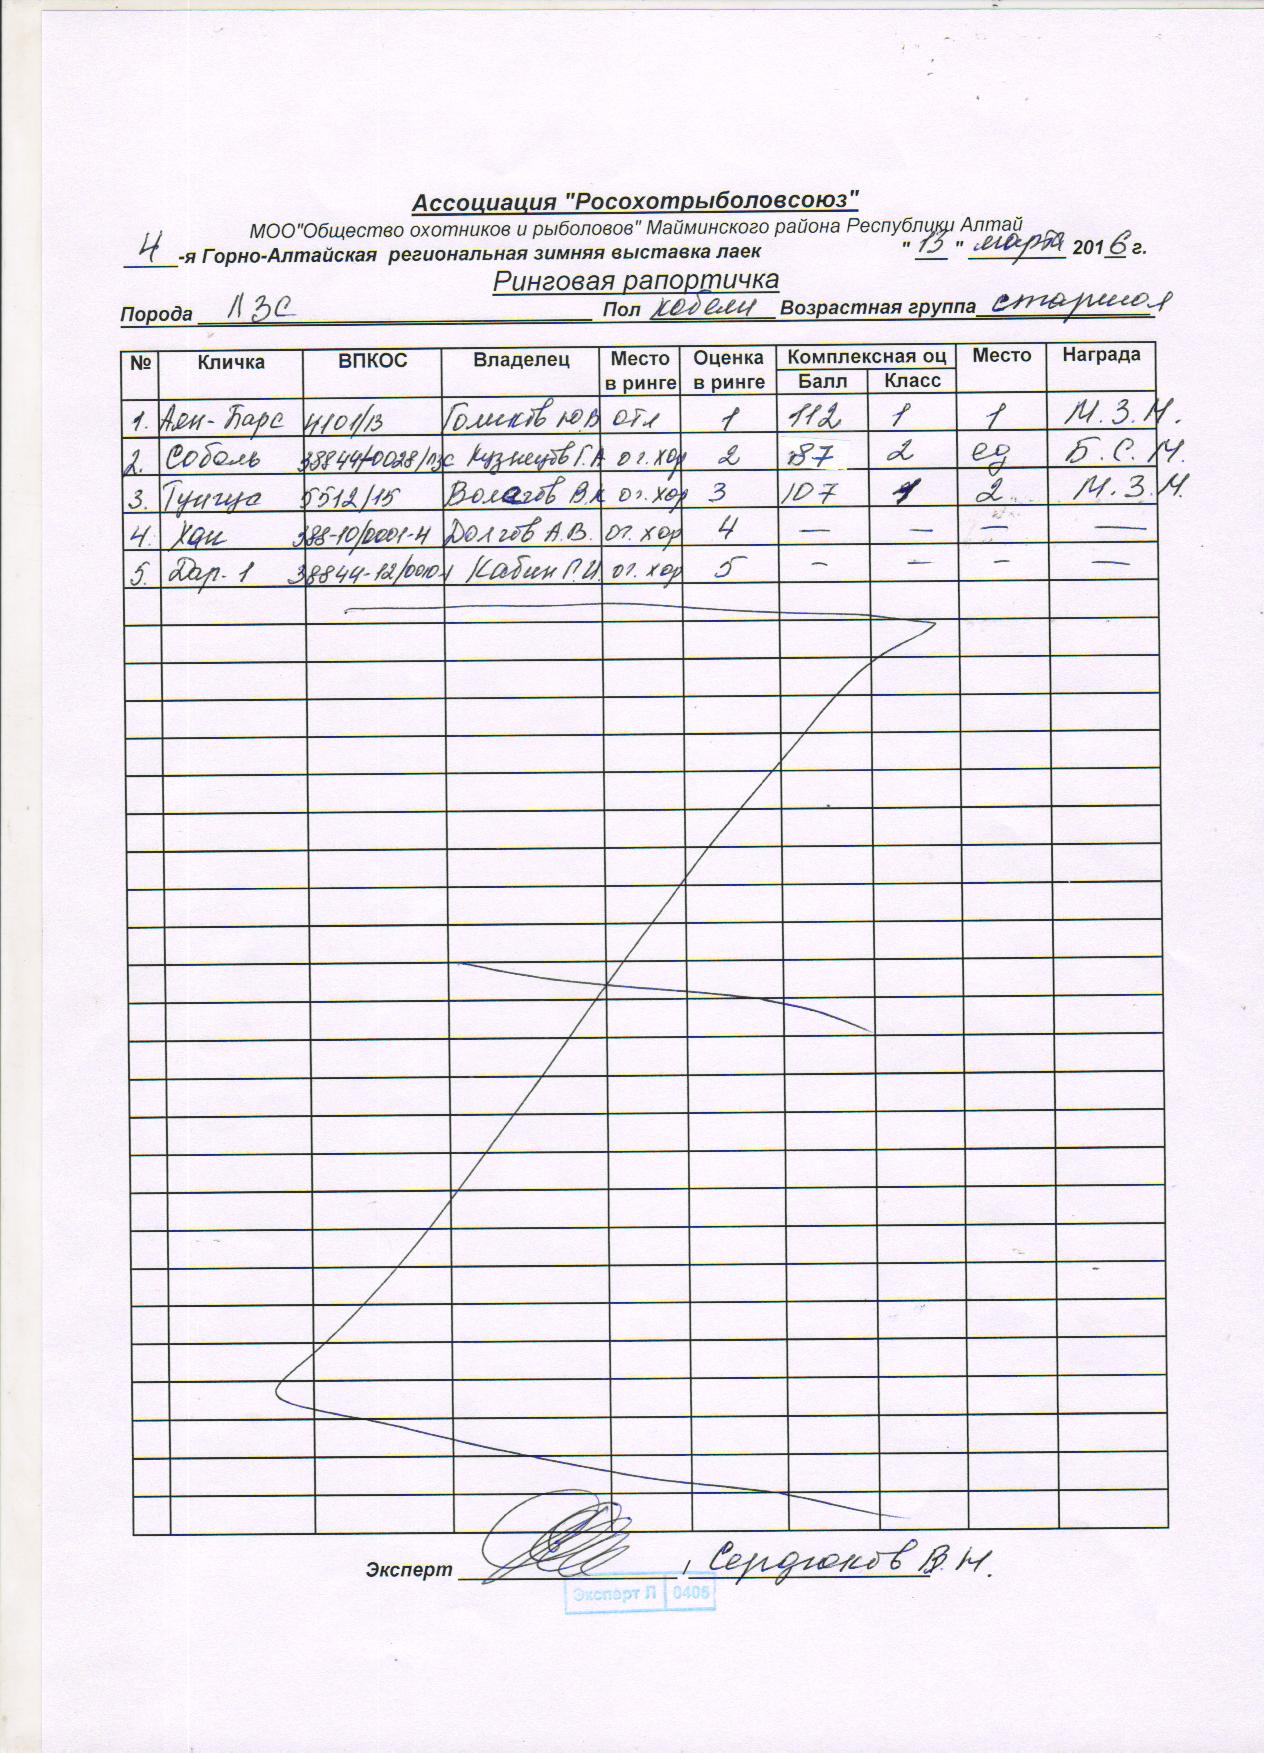 Ассоциация "Росохотрыболовсоюз"
МОО"Общество охотников и рыболовов" Майминского района Республики Алтай
4-я Горно-Алтайская региональная зимняя выставка лаек "13" марта 2016 г.
Ринговая рапортичка
Порода ЛЗС Пол кобели Возрастная группа старшая
№ Кличка ВПКОС Владелец Место в ринге Оценка в ринге Комплексная оц Балл Класс Место Награда
1. Аян-Барс 4101/13 Голиков Ю.В отл 1 112 1 1 М.З.М.
2. Соболь 38844-0028/лзс Кузнецов Г.А оч.хор 2 87 2 ед Б.С.М.
3. 5512/15 В.К оч.хор 3 107 1 2 М.З.М.
4. Хан 388-10/0001-Ч Долгов А.В. оч.хор 4 — — — —
5. Дар-1 38844-12/0010-1 Кабин Г.И. оч.хор 5 – – – —
Эксперт , Сердюков В.Н.
Эксперт Л 0405